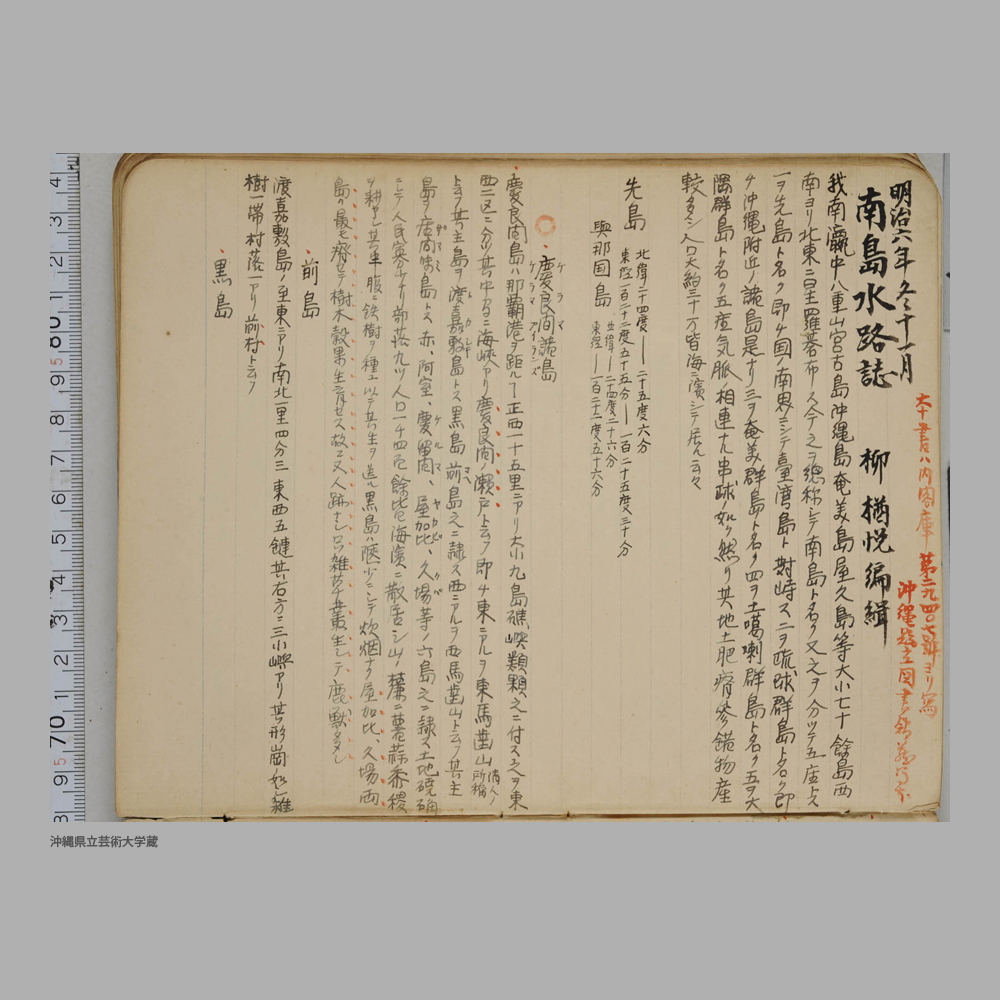 明治六年冬十一月
南島水路誌　柳楢悦編緝
大十書ハ内閣庫 第二九四〇七號ヨリ寫
沖縄縣立図書館
我南瀛中八重山宮古島沖縄島奄美島屋久島等大小七十餘島西
南ヨリ北東ニ星羅碁布ス今之ヲ総称シテ南島ト名ク又之ヲ分ツテ五座トス
一ヲ先島ト名ク即チ国ノ南界ニシテ臺湾島ト対峙ス二ヲ琉球群島ト名ク即
チ沖縄附近ノ諸島是ナリ三ヲ奄美群島ト名ク四ヲ土噶喇群島ト名ク五ヲ大
隅群島ト名ク五座気脈ノ相連ナル串球ノ如ク然リ其地土肥瘠參錯物産
較多シ人口大約三十万皆海ニ濱シテ居ル云々
先島 北緯二十四度——二十五度六分
東経一百二十二度五十五分——一百二十五度三十分
與那国島 北緯——二十四度二十六分
東経——一百二十二度五十六分
慶良間諸島
ケラマ
ケラマ アイランズ
慶良間島ハ那覇港ヲ距ル丁正西一十五里ニアリ大小九島礁嶼類顆之ニ付ス之ヲ東
西二区ニ分ツ其中間ニ海峡アリ慶良間ノ瀬戸ト云フ即チ東ニアルヲ東馬歯山 偁人ノ所称
ト云フ其主島ヲ渡嘉敷島トス黒島前島之ニ隷ス西ニアルヲ西馬歯山ト云フ其主
島ヲ座間味島トス赤、阿室、慶留間、屋加比、久場等ノ六島之ニ隷ス土地磽确
ニシテ人民寡少ナリ部落九ツ人口一千四百餘比皆海濱ニ散居シ山ノ麓ニ薯蕷蒜黍稷
ヲ耕ヤシ其車服ニ鉄樹ヲ種エ以テ其生ヲ送ル黒島ハ陿少ニシテ炊烟ナク屋加比、久場両
島ハ最モ瘠せテ樹木穀果生育セス故ニ又人跡ナシ只雑草叢生シテ鹿獣多シ
前島
渡嘉敷島ノ至東ニアリ南北一里四分三 東西五鏈其右方ニ三小嶼アリ其形崗如シ雑
樹一帯村落一アリ前村ト云フ
黒島
沖縄県立芸術大学蔵